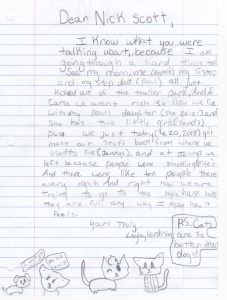 Dear Nick Scott,
I know what you were
talking about, because I am
going through a hard time too
See my mom, me my sister,
and my step dad (Paul) all just
kicked out of the trailer park. And of
Carse we arent rich So now we live
with my Dads daughter (she
She has two little girls
place We just today (4.20.2018) got
most our stuff back from where we
used to live (Jennys). and at Jennys we
left because people were smoking
And there were like ten people there
every night. And right now we are
trying to go to the but
they are full any way I know how it
feels.
Yours Truly,
P.S. Cats
are so
better than
dogs!